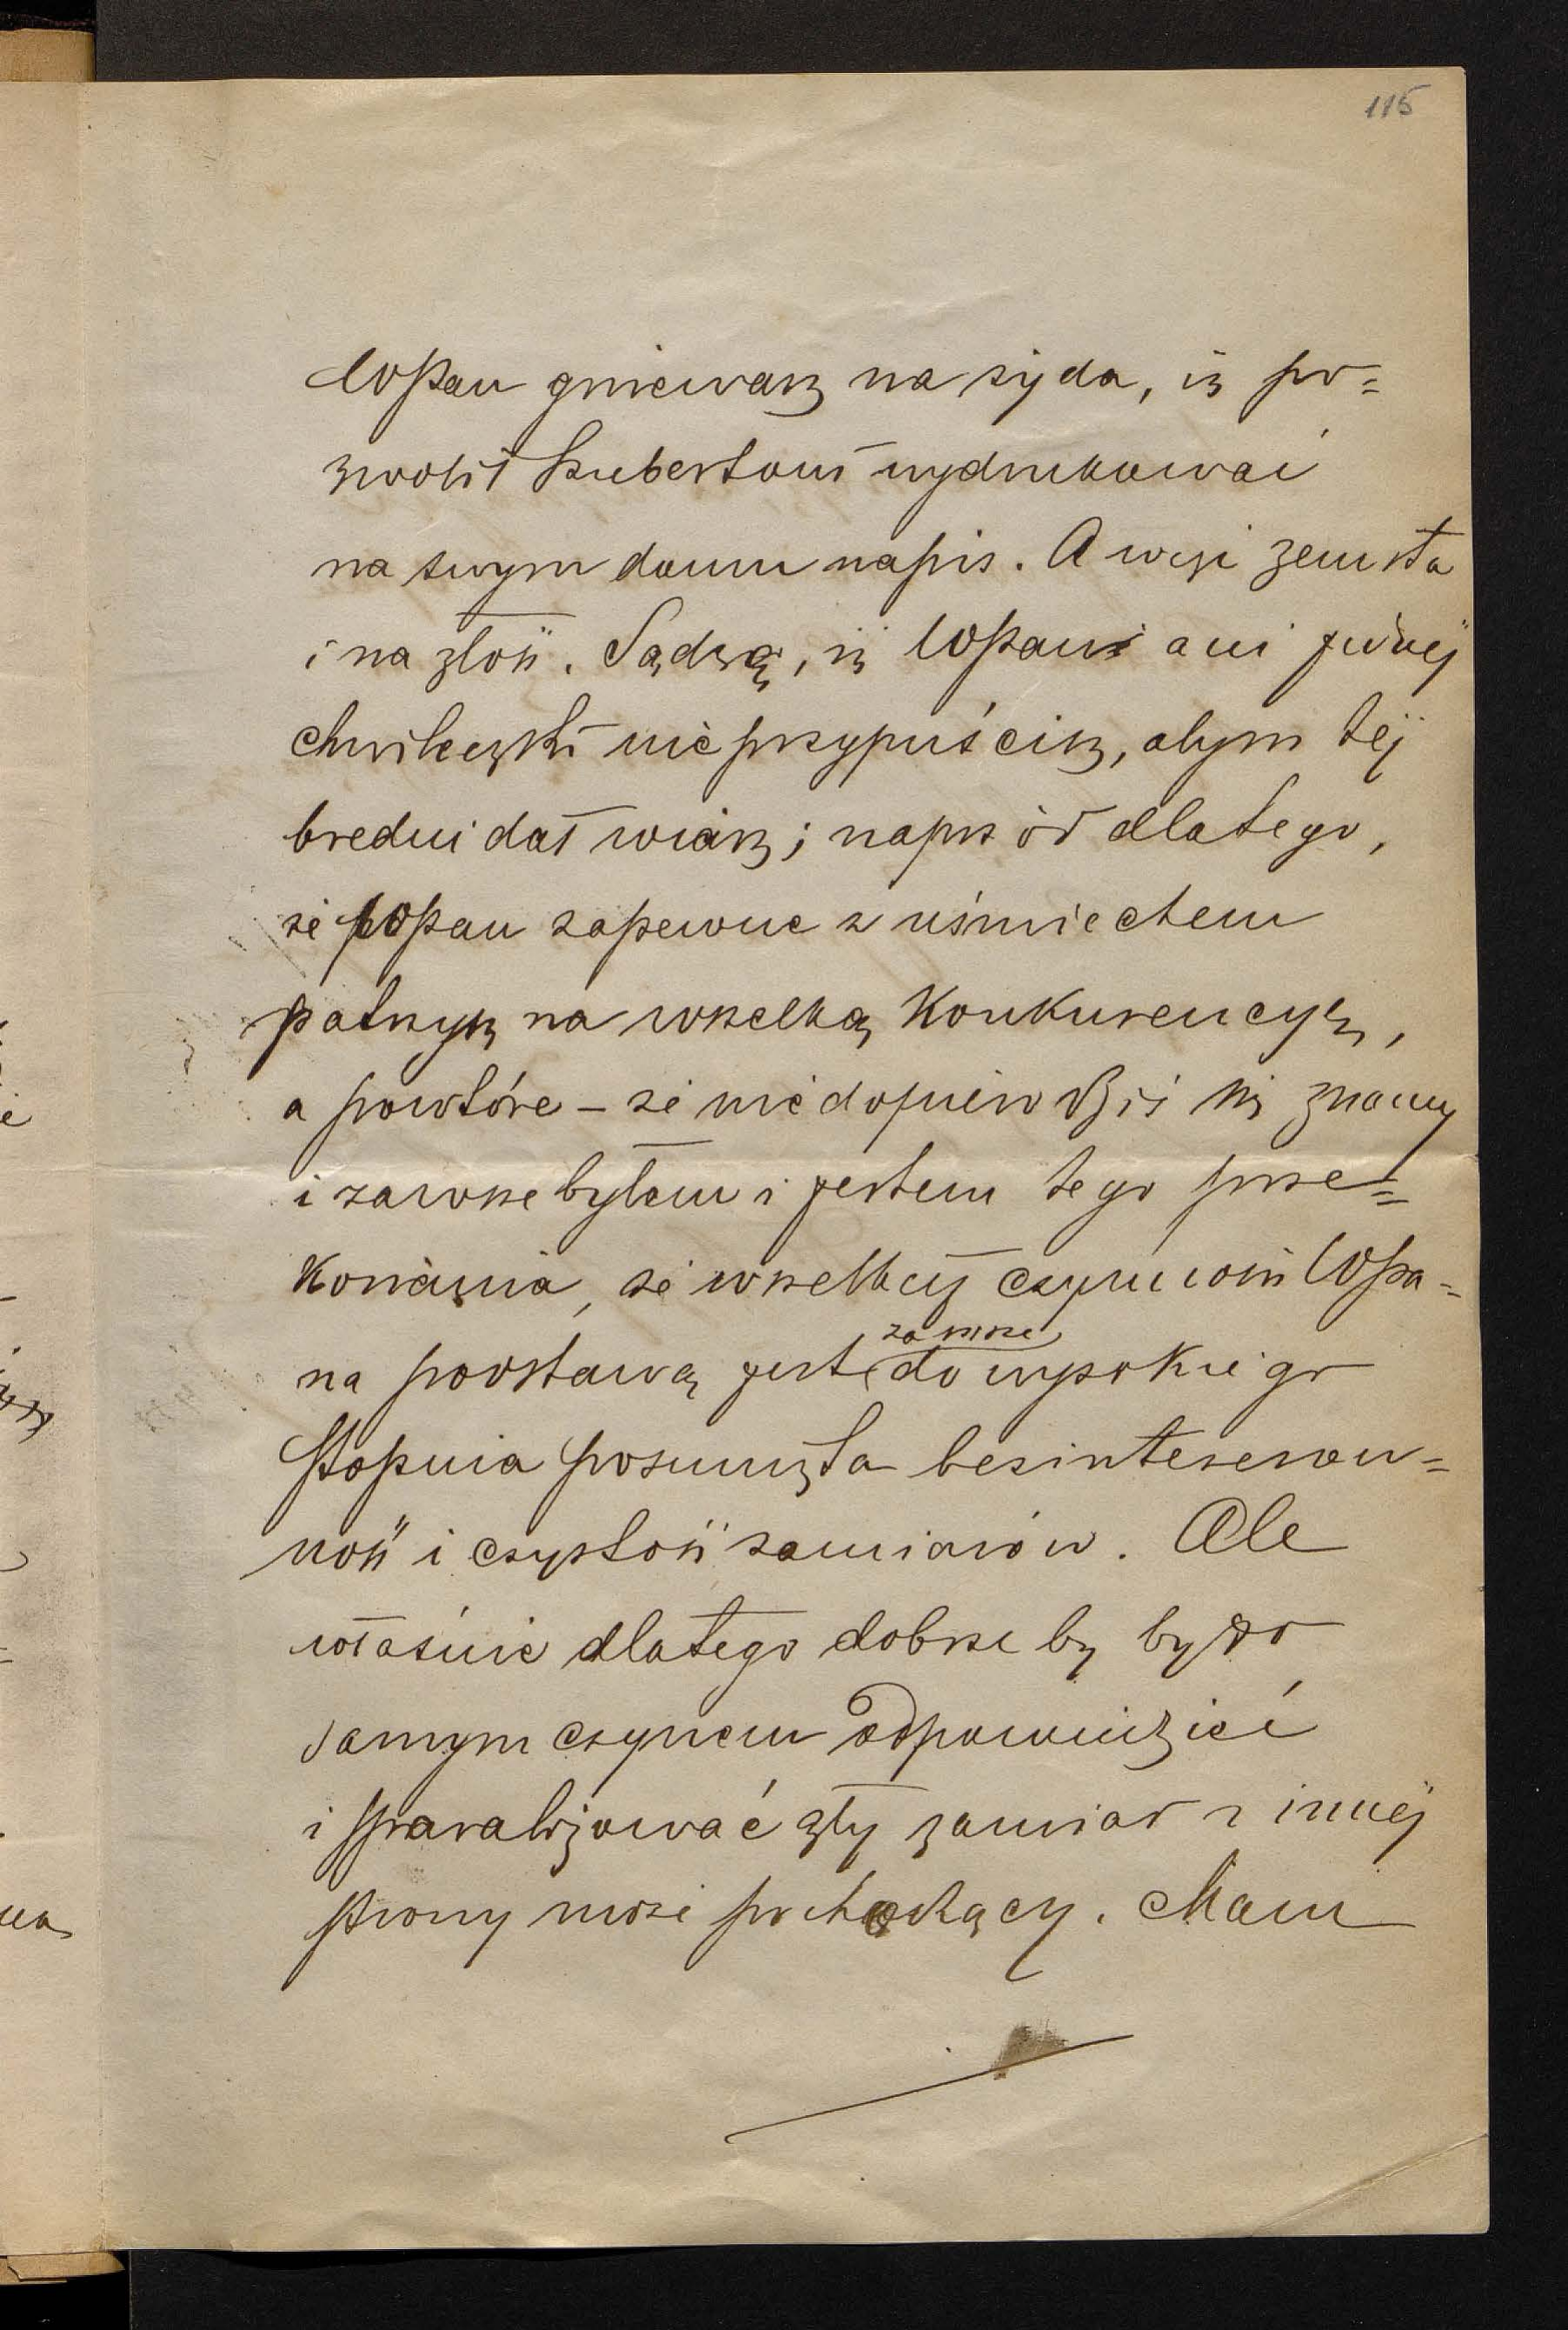 115
WPan gniewasz na żyda, iż po=
zwolił Szubertowi wydrukować
na swym domu napis. A więc zemsta
i na złość. Sądzę, iż WPan ani jednej
chwileczki nie przypuścisz, abym tej
bredni dał wiarę; naprzód dlatego,
że WPan zapewne z uśmiechem
patrzysz na wszelką Konkurencyę,
a powtóre – że nie dopiero dziś się znamy
i zawsze byłem i jestem tego prze=
Konania, że wszelkiej czynności WPa=
na podstawą jest zawsze do wysokiego
stopnia posunięta bezinteresown=
ność i czystość zamiarów. Ale
właśnie dlatego dobrze by było
samym czynem odpowiedzieć
i sparaliżować zły zamiar z innej
strony może pochodzący. Mam